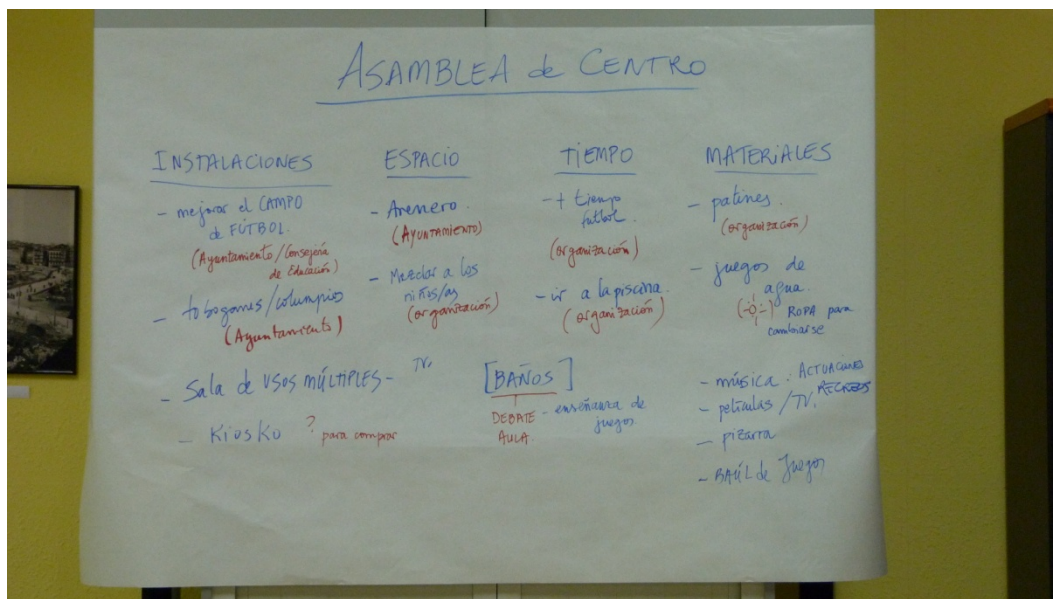 ASAMBLEA de CENTRO
INSTALACIONES
- mejorar el CAMPO
de FÚTBOL.
(Ayuntamiento/Consejería
de Educación)
- toboganes/columpios
(Ayuntamiento)
- Sala de USOS MÚLTIPLES - TV.
- KiosKo ? para comprar
ESPACIO
- Arenero.
(AYUNTAMIENTO)
- Mezclar a los
niños/as
(organización)
[BAÑOS]
DEBATE
AULA.
TIEMPO
- + tiempo
futbol.
(organización)
- ir a la piscina.
(organización)
- enseñanza de
juegos.
MATERIALES
- patines.
(organización)
- juegos de
agua.
ROPA para
cambiarse
- música : ACTUACIONES
RECREOS
- películas / TV.
- pizarra
- BAÚL de Juegos